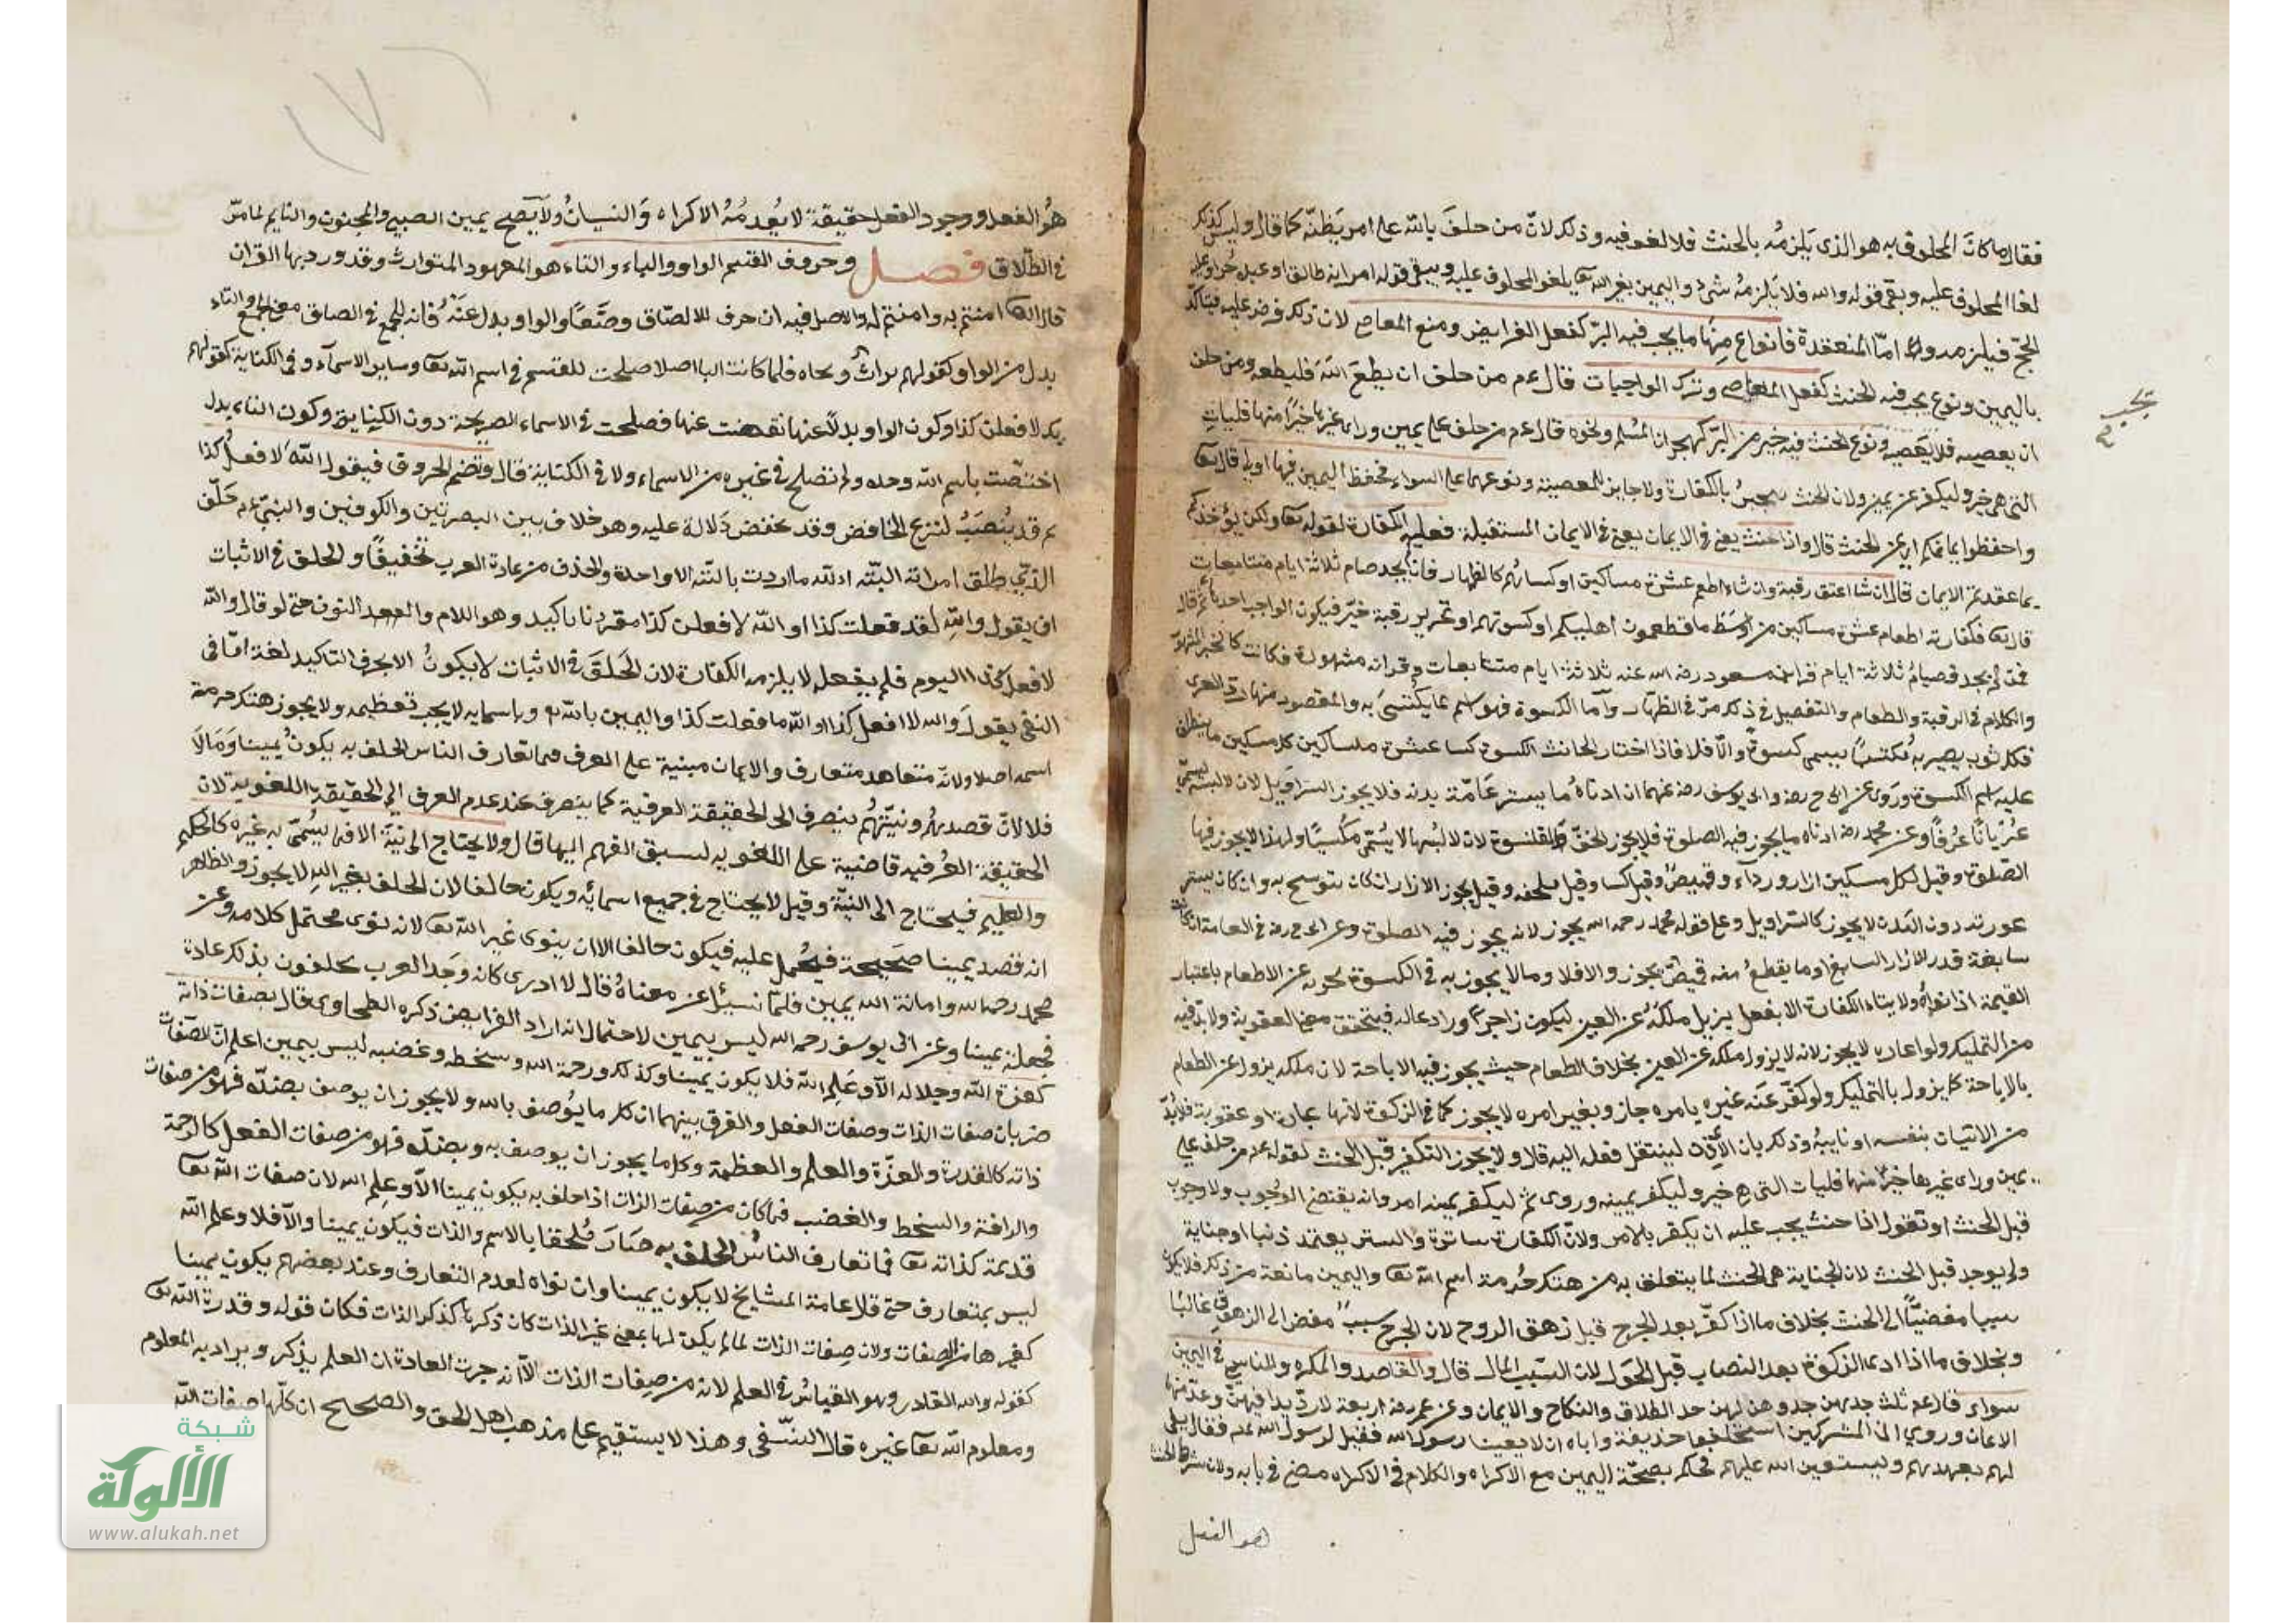 فقال ما كان المحلوف به هو الذي يلزمه بالحنث فلا لغو فيه وذلك لان من حلف بالله على امر يظنه كما قال وليس كذلك
لغا المحلوف عليه وبقى قوله والله فلا يلزمه شيء واليمين بغير الله تعا يلغو المحلوف عليه ويبقى قوله امراته طالق او عبده حر او عليه
الحج فيلزمه وله اما المنعقدة فانواع منها ما يجب فيه البر كفعل الفرايض ومنع المعاصي لان ذلك فرض عليه فيتاكد
باليمين ونوع يجب فيه الحنث كفعل المعاصي وترك الواجبات قال عم من حلف ان يطيع الله فليطعه ومن حلف
ان يعصيه فلا يعصيه ونوع الحنث فيه خير من البر كهجران المسلم ونحوه قال عم من حلف على يمين وراى غيرها خيرا منها فليات
التي هي خير وليكفر عن يمينه ولان الحنث بالكفارة ولا جابر للمعصية ونوع هما على السواء فحفظ اليمين فيها اولى قال تعا
واحفظوا ايمانكم اي عن الحنث قال واذا حنث يعني في الايمان يعني في الايمان المستقبلة فعليه الكفارة لقوله تعا ولكن يؤخذكم
بما عقدتم الايمان قال ان شا اعتق رقبة وان شاء اطعم عشرة مساكين او كساهم كالظهار فان لم يجد صام ثلاثة ايام متتابعات
قال تعا فكفارته اطعام عشرة مساكين من اوسط ما تطعمون اهليكم او كسوتهم او تحرير رقبة خير فيكون الواجب احدها ثم قال
فمن لم يجد فصيام ثلاثة ايام قرا ابن مسعود رضي الله عنه ثلاثة ايام متتابعات وقراته مشهورة فكانت كالخبر المشهور
والكلام في الرقبة والطعام والتفصيل في ذلك مر في الظهار واما الكسوة فهو اسم لما يكتسى به والمقصود منها رد العرى
فكل ثوب يصير به مكتسيا يسمى كسوة والا فلا فاذا اختار الحانث الكسوة كسا عشرة مساكين كل مسكين ما ينطلق
عليه اسم الكسوة وروى عن ابي ح رضه وابي يوسف رضه عنهما ان ادناه ما يستر عامة بدنه فلا يجوز السراويل لان لابسه يسمى
عريانا عرفا وعن محمد رضه ادناه ما يجوز فيه الصلوة فلا يجوز الخف والقلنسوة لان لابسها لا يسمى مكتسيا ولهذا لا يجوز فيها
الصلوة وقيل لكل مسكين ازار ورداء وقميص وقيل كسا وقيل ملحفة وقيل يجوز الازار ان كان يتوشح به وان كان يستر
عورته دون البدن لا يجوز كالسراويل وعلى قوله محمد رحمه الله يجوز لانه يجوز فيه الصلوة وعن ابي ح رضه في العمامة ان كانت
سابغة قدر الازار السابغ او ما يقطع منه قميص يجوز والا فلا وما لا يجوز به في الكسوة يجوز عن الاطعام باعتبار
القيمة اذا نواه ولا يتاد الكفارة الا بفعل يزيل ملكه عن العين ليكون زاجرا ورادعا له فيتحقق معنى العقوبة ولا بد فيه
من التمليك ولو اعاره لا يجوز لانه لا يزول ملكه عن العين بخلاف الطعام حيث يجوز فيه الاباحة لان ملكه يزول عن الطعام
بالاباحة كما يزول بالتمليك ولو كفر عنه غيره بامره جاز وبغير امره لا يجوز كما في الزكوة لانها عبادة او عقوبة فلا بد
من الاتيان بنفسه او نايبه وذلك بان الاذن لينتقل فعله اليه قال ولا يجوز التكفير قبل الحنث لقوله عم من حلف على
يمين وراى غيرها خيرا منها فليات التي هي خير وليكفر يمينه وروى ثم ليكفر يمينه امر وانه يقتضي الوجوب ولا وجوب
قبل الحنث او تقول اذا حنث يجب عليه ان يكفر بالامر ولان الكفارة ساترة والستر يعتمد ذنبا او جناية
ولم يوجد قبل الحنث لان الجناية هي الحنث لما يتعلق به من هتك حرمة اسم الله تعا واليمين مانعة من ذلك فلا يكون
سببا مفضيا الى الحنث بخلاف ما اذا كفر بعد الجرح قبل زهق الروح لان الجرح سبب مفض الى الزهوق غالبا
وبخلاف ما اذا ادى الزكوة بعد النصاب قبل الحول لان السبب المال قال والقاصد والمكره والناسي في اليمين
سواء قال عم ثلث جدهن جد وهزلهن جد الطلاق والنكاح والايمان وعن عمر رضه اربعة لا رديدا فيهن وعد منها
الايمان وروي ان المشركين استحلفوا حذيفة واباه ان لا يعينا رسول الله فقيل لرسول الله عم فقال يفي
لهم بعهدهم ونستعين الله عليهم فحكم بصحة اليمين مع الاكراه والكلام في الاكراه مضى في بابه ولان شرط الحنث
هو الفعل
هو الفعل ووجود الفعل حقيقة لا يعدمه الاكراه والنسيان ولا يصح يمين الصبي والمجنون والنايم لما مر
في الطلاق فصل وحروف القسم الواو والباء والتاء هو المعهود المتوارث وقد ورد بها القران
قال الله امنتم به وامنتم له والاصل فيه ان حرف للالصاق وضعا والواو بدل عنه فانه للجمع في الصاق معنى الجمع والتاء
بدل من الواو كقولهم تراث وتجاه فلما كانت البا اصلا صلحت للقسم في اسم الله تعا وساير الاسماء وفي الكناية كقولهم
بك لافعلن كذا وكون الواو بدلا عنها نقصت عنها فصلحت في الاسماء الصريحة دون الكناية وكون التاء بدل
اختصت باسم الله وحده ولم تصلح في غيره من الاسماء ولا في الكناية قال وتضم الحروف فيقول الله لا افعل كذا
ثم قد ينصب لنزع الخافض وقد تخفض دلالة عليه وهو خلاف بين البصريين والكوفيين والنبي عم حلف
الذي طلق امراته البتة الله ما اردت بالبتة الا واحدة والحذف من عادة العرب تخفيفا والحلف في الاثبات
ان يقول والله لقد فعلت كذا او الله لافعلن كذا مقرونا بالتاكيد وهو اللام والنون حتى لو قال والله
لافعل كذا اليوم فلم يفعل لا يلزمه الكفارة لان الحلف في الاثبات لا يكون الا بحرف التاكيد لغة اما في
النفي يقول والله لا افعل كذا او الله ما فعلت كذا واليمين بالله تع وباسمايه لا يجب تعظيمه ولا يجوز هتك حرمة
اسمه اصلا ولانه متعاهد متعارف والايمان مبنية على العرف فما تعارف الناس الحلف به يكون يمينا وما لا
فلا لان قصدهم ونيتهم ينصرف الى الحقيقة العرفية كما ينصرف عند عدم العرف الى الحقيقة اللغوية لان
الحقيقة العرفية قاضية على اللغوية لسبق الفهم اليها قال ولا يحتاج الى نية الا فيما يسمى به غيره كالحكيم
والعليم فيحتاج الى النية وقيل لا يحتاج في جميع اسمائه ويكون حالفا لان الحلف بغير الله لا يجوز والظاهر
انه قصد يمينا صحيحة فيحمل عليه فيكون حالفا الا ان ينوى غير الله تعا لانه نوى محتمل كلامه وعن
محمد رحمه الله وامانة الله يمين فلما سئل عن معناه قال لا ادرى كانه وجد العرب يحلفون بذلك عادة
فجعله يمينا وعن ابي يوسف رحمه الله ليس بيمين لاحتمال انه اراد الفرايض ذكره الطحاوي قال بصفات ذاته
كعزة الله وجلاله الا وعلم الله فلا يكون يمينا وكذلك ورحمة الله وسخطه وغضبه ليس بيمين اعلم ان الصفات
ضربان صفات الذات وصفات الفعل والفرق بينهما ان كل ما يوصف بالله ولا يجوز ان يوصف بضده فهو من صفات
ذاته كالقدرة والعزة والعلم والعظمة وكل ما يجوز ان يوصف به وبضده فهو من صفات الفعل كالرحمة
والرافة والسخط والغضب فما كان من صفات الذات اذا حلف به يكون يمينا الا وعلم الله لان صفات الله تعا
قديمة كذاته تعا فما تعارف الناس الحلف به صار ملحقا بالاسم والذات فيكون يمينا والا فلا وعلم الله
ليس بمتعارف حتى قال عامة المشايخ لا يكون يمينا وان نواه لعدم التعارف وعند بعضهم يكون يمينا
كغيرها من الصفات ولان صفات الذات لما لم يكن لها بمعنى غير الذات كان ذكرها كذكر الذات فكان قوله وقدرة الله تعا
كقوله والله القادر وهو القياس في العلم لانه من صفات الذات الا انه جرت العادة ان العلم يذكر ويراد به المعلوم
ومعلوم الله تعا غيره قال النسفي وهذا لا يستقيم على مذهب اهل الحق والصحيح ان كلها صفات الله
شبكة
الألوكة
www.alukah.net